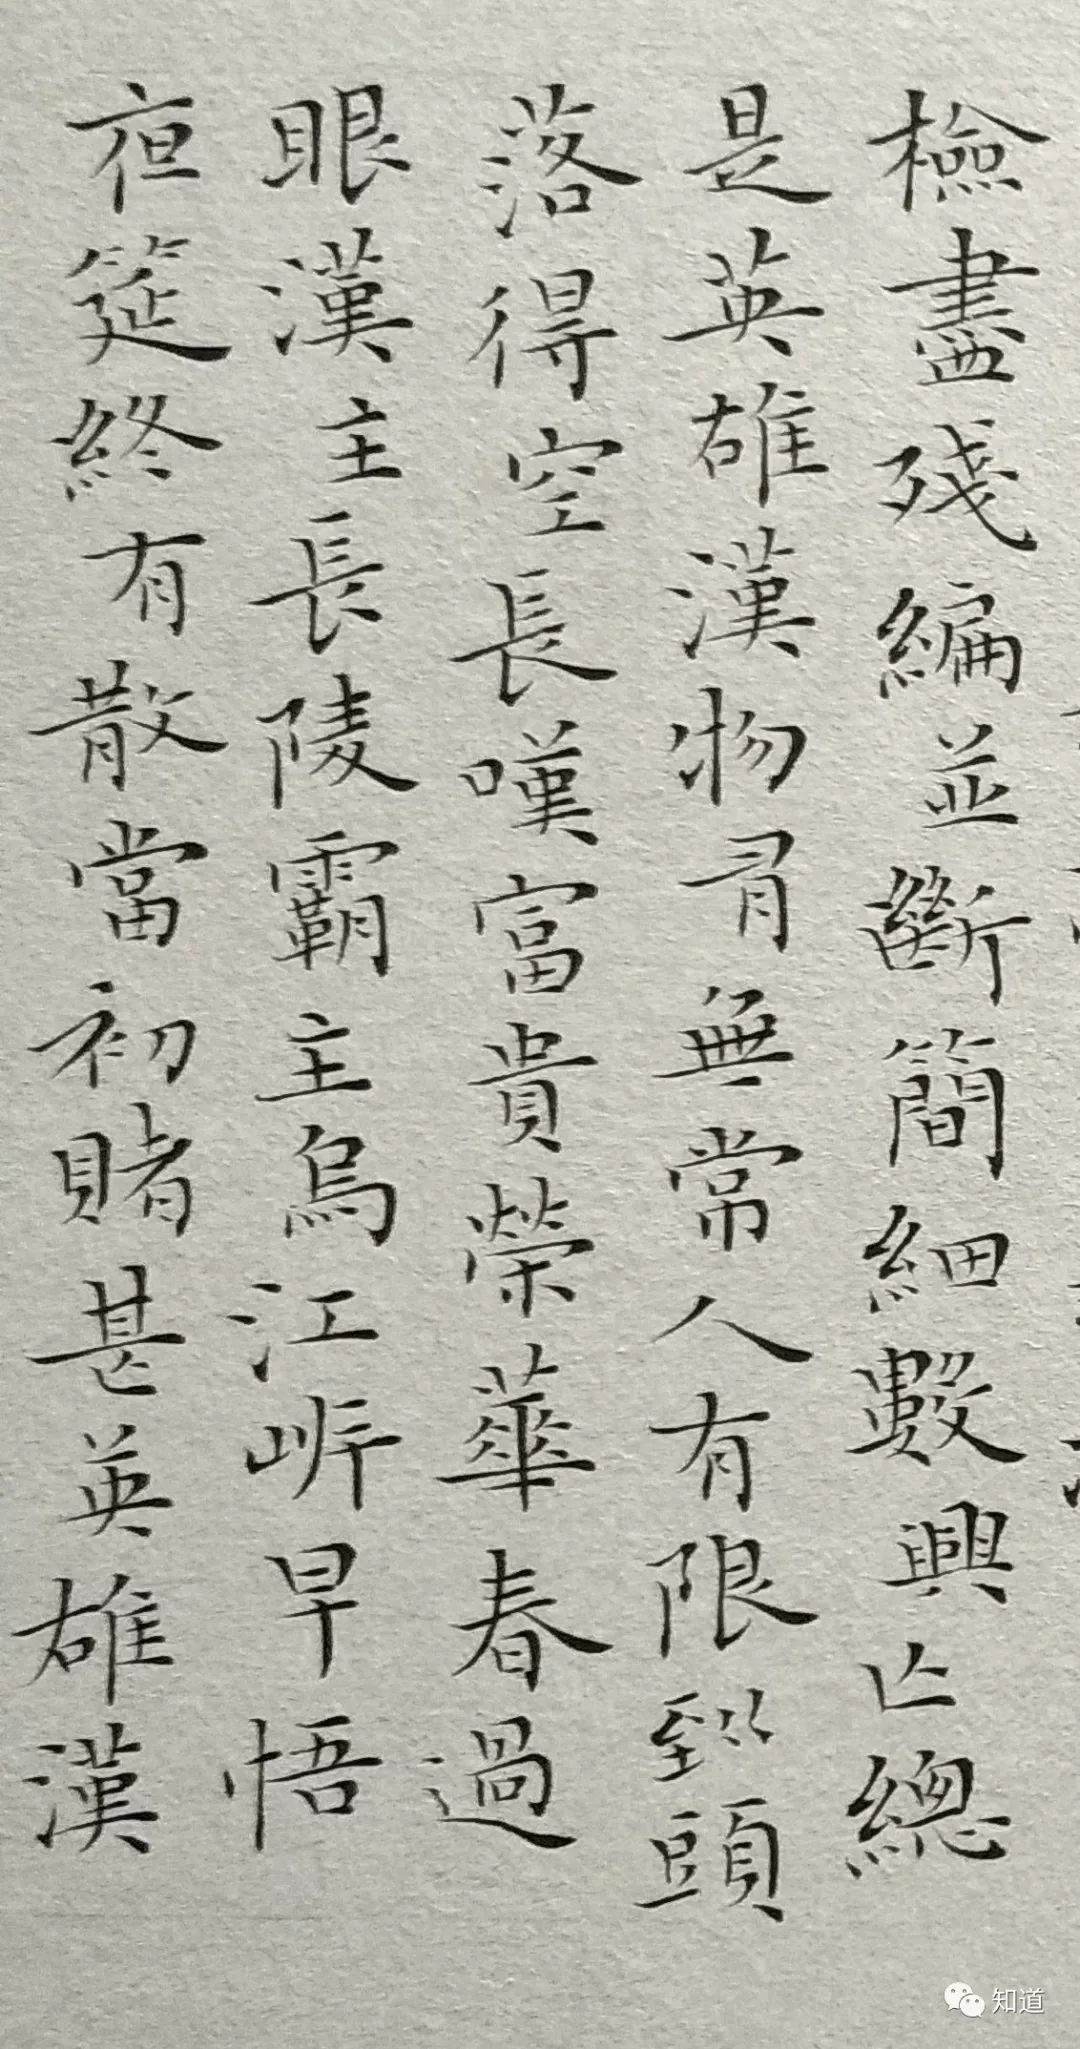 檢盡殘編並斷簡細數興亡總
是英雄漢物有無常人有限到頭
落得空長嘆富貴榮華春過
眼漢主長陵霸主烏江岸早悟
夜筵終有散當初賭甚英雄漢
知道